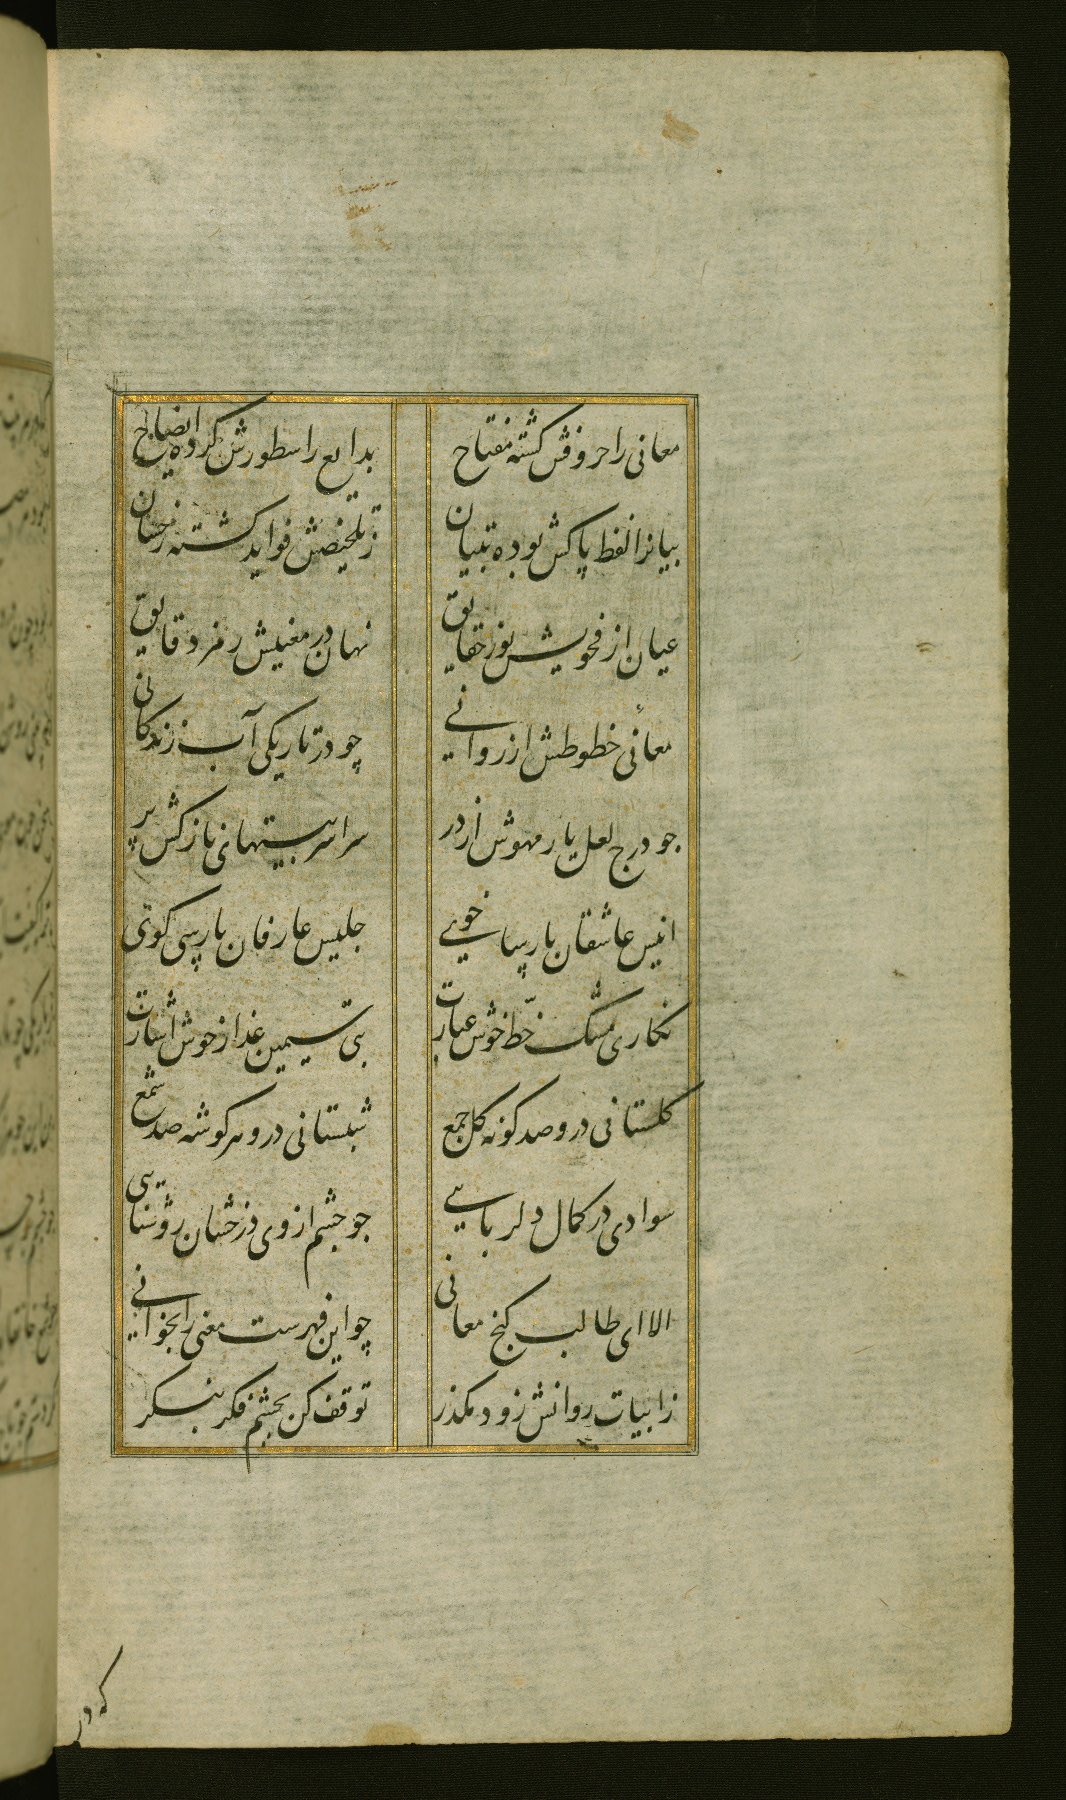 معانی را حروفش کشته مفتاح
بدایع را سطورش کرده ایضاح
بیانرا لفظ پاکش بوده تبیان
ز تلخیصش فواید کشته رخشان
عیان از فحویش نور حقایق
نهان در معنیش رمز دقایق
معانی خطوطش از روانی
چو در تاریکی آب زندکانی
جو درج لعل یار مهوش از در
سراسر بیتهای نازکش پر
انیس عاشقان پارسا خویی
جلیس عارفان پارسی کوی
نکاری مشک خط خوش عبارت
بتی سیمین عذار خوش اشارت
کلستانی درو صد کونه کل جمع
شبستانی درو هر کوشه صد شمع
سوادی در کمال دلربایی
جو جشم از وی درخشان روشنایی
الا ای طالب کنج معانی
چو این فهرست معنی را بخوانی
ز ابیات روانش زود مکذر
توقف کن بجشم فکر بنکر
که در